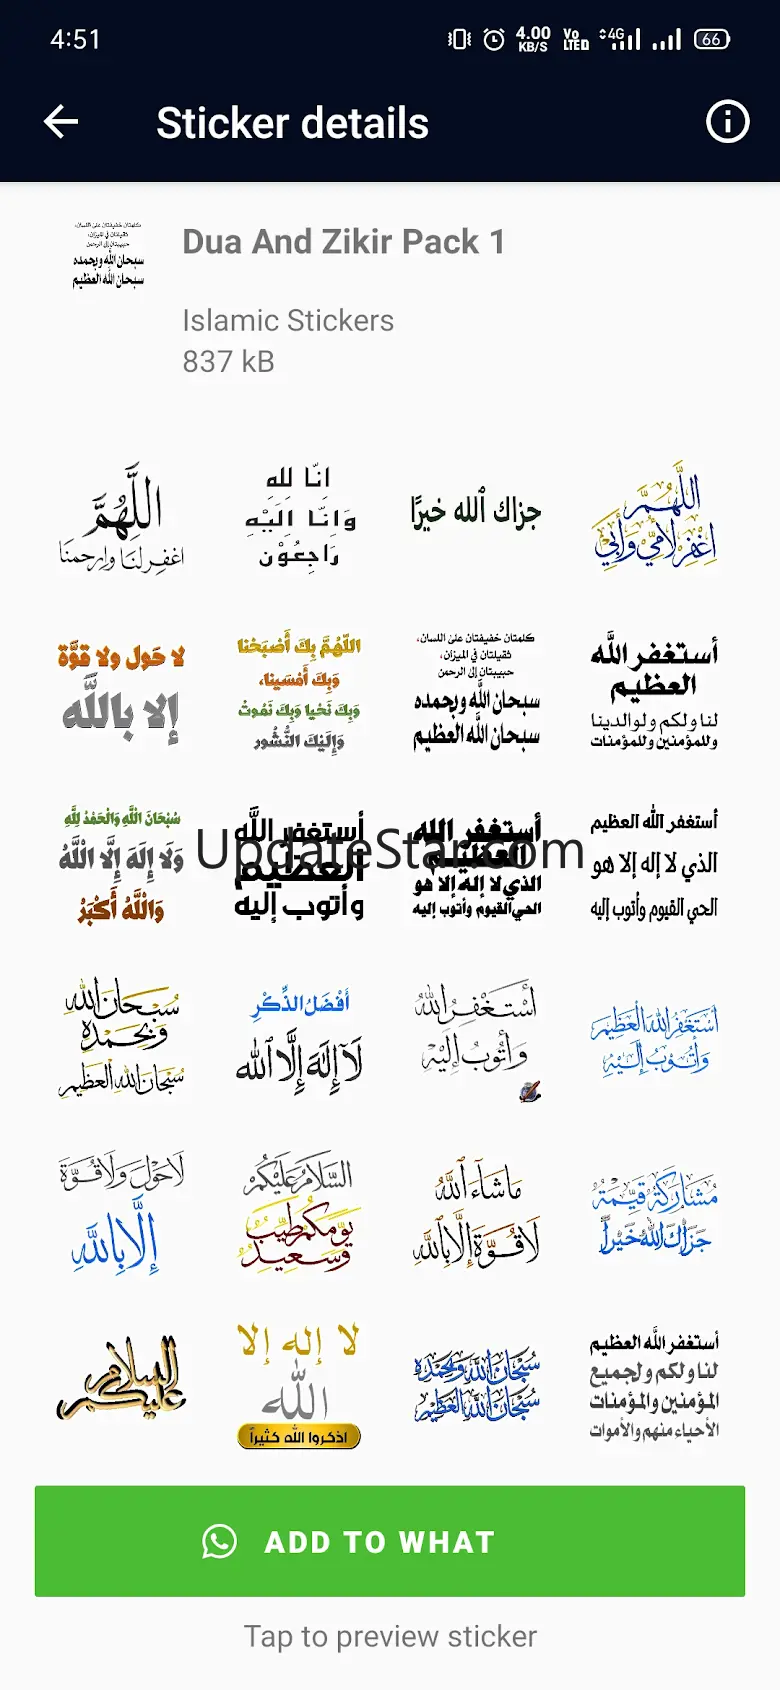 4:51
4.00
KB/S
Vo
LTED
4G
66
Sticker details
كلمتان خفيفتان على اللسان،
ثقيلتان في الميزان،
حبيبتان إلى الرحمن
سبحان الله وبحمده
سبحان الله العظيم
Dua And Zikir Pack 1
Islamic Stickers
837 kB
اللَّهُمَّ
اغفرلنا وارحمنا
انّا لله
وَانَّا اِلَيْهِ
رَاجِعُوْن
جزاك الله خيرًا
اللَّهُمَّ
اغْفِرْ لأمي وأبي
لا حَول ولا قوَّة
إلا باللَّه
اللَّهُمَّ بِكَ أَصْبَحْنا
وَبِكَ أَمْسَينا،
وَبِكَ نَحْيا وَبِكَ نَمُوتُ
وَإِلَيْكَ النُّشُور
كلمتان خفيفتان على اللسان،
ثقيلتان في الميزان،
حبيبتان إلى الرحمن
سبحان الله وبحمده
سبحان الله العظيم
أستغفر الله
العظيم
لنا ولكم ولوالدينا
وللمؤمنين وللمؤمنات
سُبْحَانَ اللَّهِ وَالْحَمْدُ لِلَّهِ
وَلا إِلَهَ إِلَّا اللَّهُ
وَاللَّهُ أَكْبَرُ
أستغفر الله
العظيم
وأتوب إليه
أستغفر الله
العظيم
الذي لا إله إلا هو
الحي القيوم وأتوب إليه
أستغفر الله العظيم
الذي لا إله إلا هو
الحي القيوم وأتوب إليه
UpdateStar.com
سُبْحَانَ الله
وَبِحَمْدِهِ
سُبْحَانَ اللهِ العَظِيمِ
أَفْضَلُ الذِّكْرِ
لَا إِلَهَ إِلَّا الله
أَسْتَغْفِرُ اللَّهَ
وَأَتُوبُ إِلَيْهِ
أَسْتَغْفِرُ اللهَ العَظِيم
وَأَتُوبُ إِلَيْهِ
لَا حَوْلَ وَلَا قُوَّةَ
إِلَّا بِاللَّهِ
السَّلَامُ عَلَيْكُمْ
يَوْمُكُمْ طَيِّبٌ
وَسَعِيدٌ
مَا شَاءَ اللَّهُ
لَا قُوَّةَ إِلَّا بِاللَّهِ
مُشَارَكَةٌ قَيِّمَةٌ
جَزَاكَ اللهُ خَيْراً
السلام
عليكم
لا إله إلا
الله
اذكروا الله كثيراً
سُبْحَانَ اللَّهِ وَبِحَمْدِهِ
سُبْحَانَ اللَّهِ العَظِيمِ
أستغفر الله العظيم
لنا ولكم ولجميع
المؤمنين والمؤمنات
الأحياء منهم والأموات
ADD TO WHAT
Tap to preview sticker